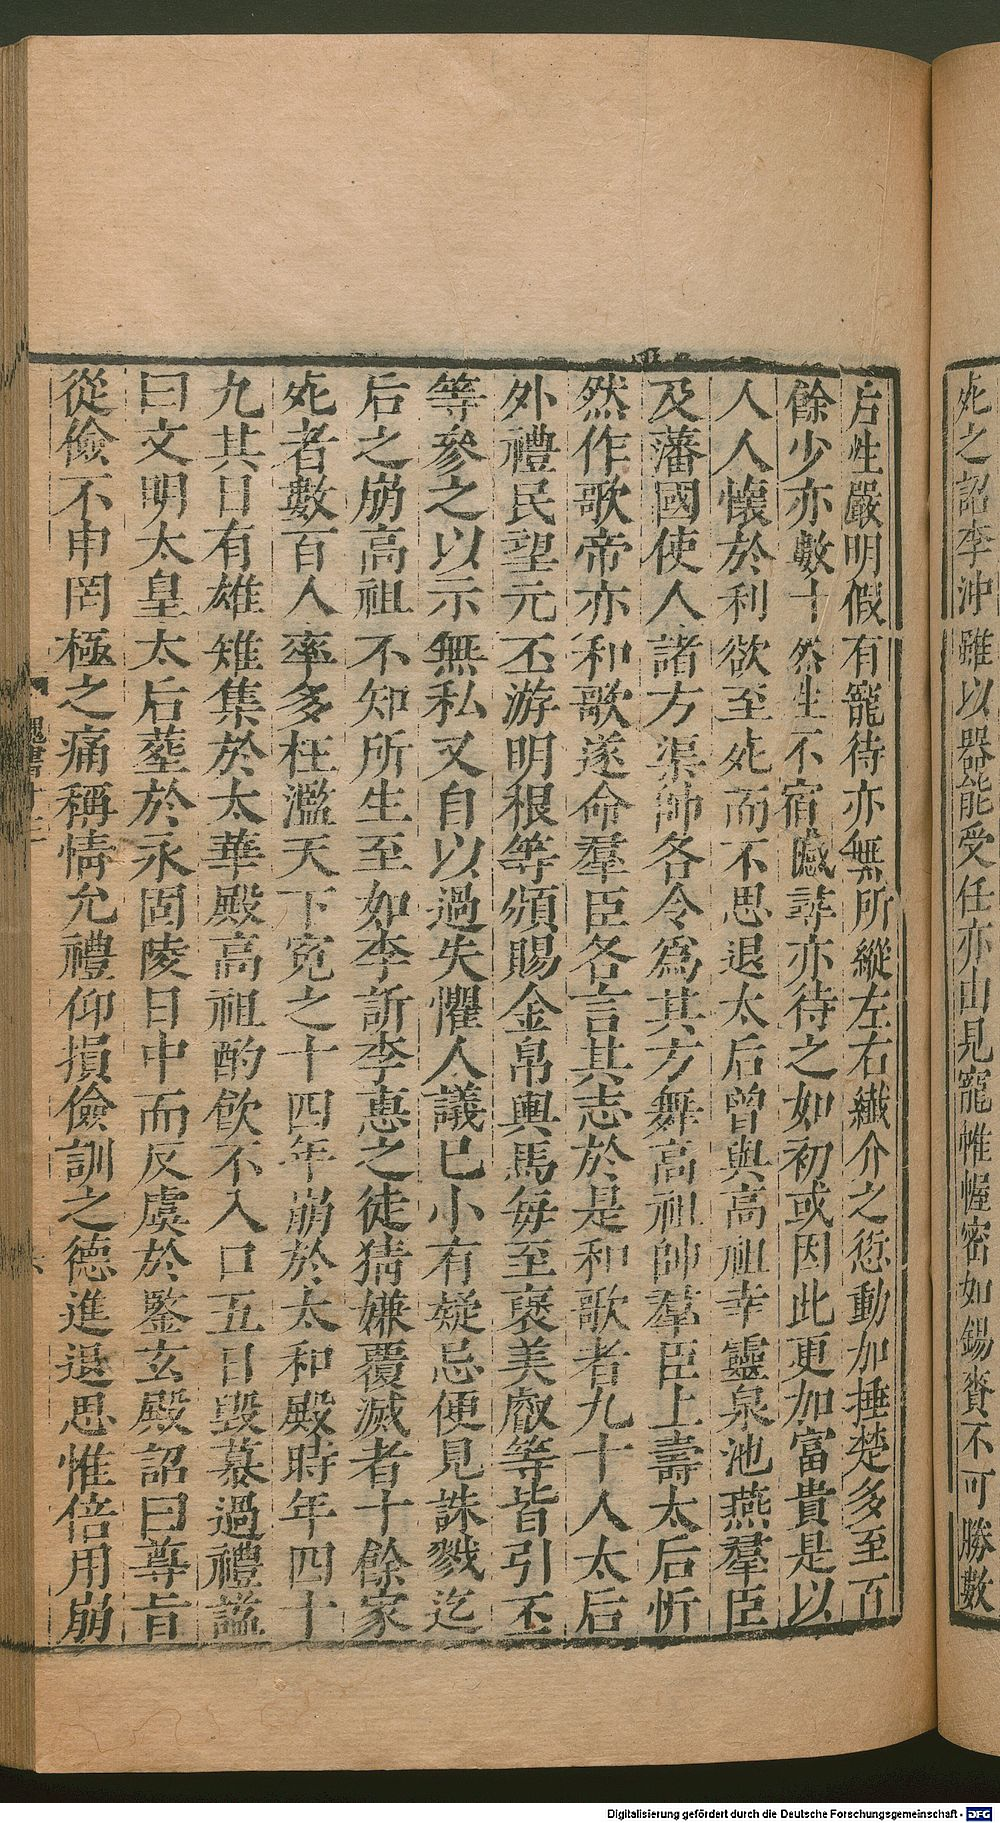 死之詔李沖雖以器能受任亦由見寵帷幄密如錫賚不可勝數
后性嚴明假有寵待亦無所縱左右纖介之愆動加捶楚多至百
餘少亦數十然性不宿憾尋亦待之如初或因此更加富貴是以
人人懷於利欲至死而不思退太后曾與高祖幸靈泉池燕羣臣
及藩國使人諸方渠帥各令爲其方舞高祖帥羣臣上壽太后忻
然作歌帝亦和歌遂命羣臣各言其志於是和歌者九十人太后
外禮民望元丕游明根等頒賜金帛輿馬每至褒美叡等皆引丕
等參之以示無私又自以過失懼人議已小有疑忌便見誅戮迄
后之崩高祖不知所生至如李訢李惠之徒猜嫌覆滅者十餘家
死者數百人率多枉濫天下寃之十四年崩於太和殿時年四十
九其日有雄雉集於太華殿高祖酌飲不入口五日毀慕過禮諡
曰文明太皇太后葬於永固陵日中而反虞於鑒玄殿詔曰尊旨
從儉不申罔極之痛稱情允禮仰損儉訓之德進退思惟倍用崩
魏書十三
六
Digitalisierung gefördert durch die Deutsche Forschungsgemeinschaft - DFG